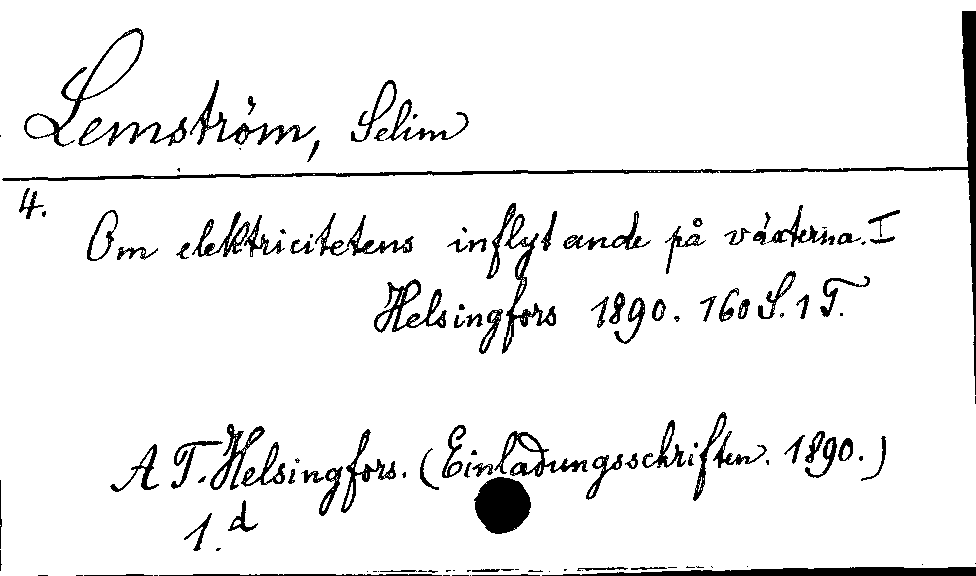 Lemström, Selim
4.
Om elektricitetens inflytande på växterna. I
Helsingfors 1890. 160 S. 1 T.
A T. Helsingfors. (Einladungsschriften. 1890.)
1.d